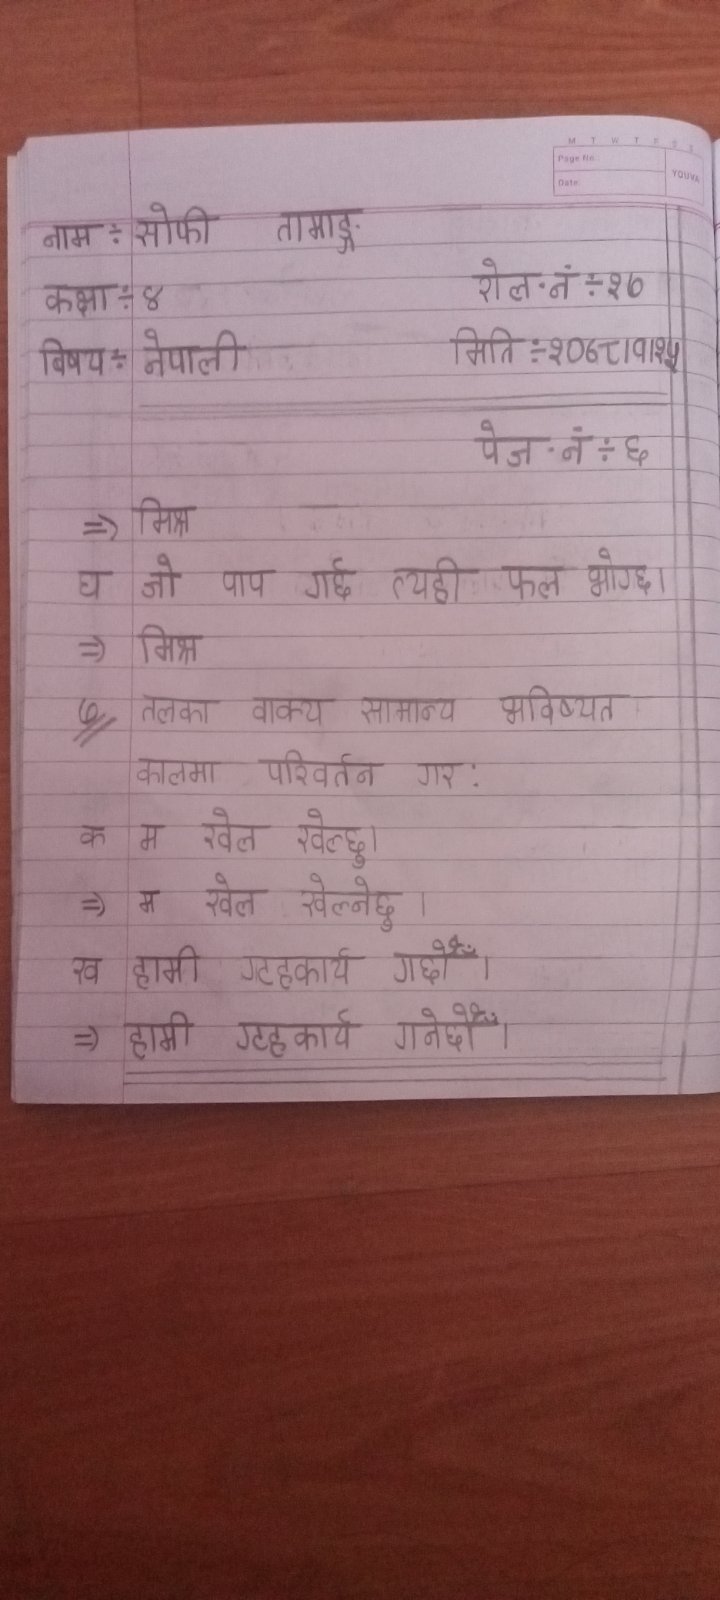 M T W T F S S
Page No.
Date:
YOUVA
नाम ÷ सोफी तामाङ्ग
कक्षा ÷ ४ रोल.नं ÷ २७
विषय ÷ नेपाली मिति ÷ २०७८।१।२५
पेज.नं ÷ ६
=> मिश्र
घ जो पाप गर्छ त्यही फल भोग्छ।
=> मिश्र
७ तलका वाक्य सामान्य भविष्यत
कालमा परिवर्तन गर:
क म खेल खेल्छु।
=> म खेल खेल्नेछु।
ख हामी गृहकार्य गर्छौँ।
=> हामी गृहकार्य गनेछौँ।